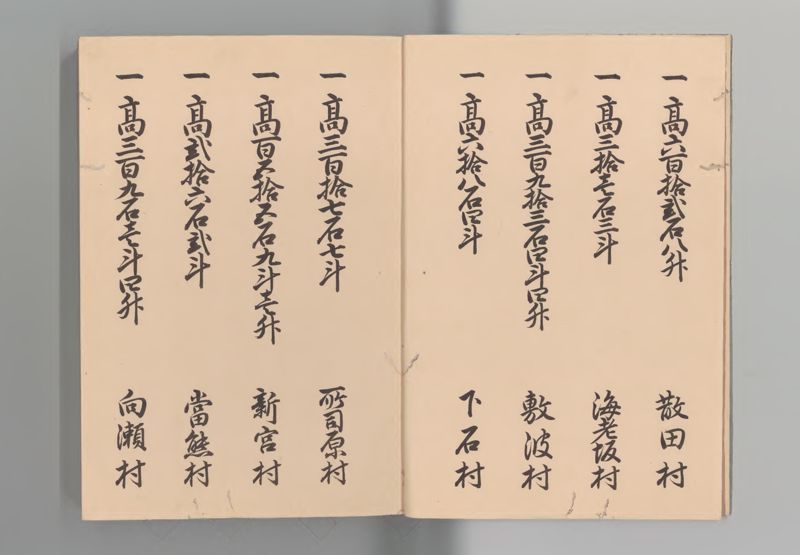 一 高六百拾弐石八升 散田村
一 高三拾壱石三斗 海老坂村
一 高三百九拾三石四斗四升 敷波村
一 高六拾八石四斗 下石村
一 高三百拾七石七斗 所司原村
一 高百六拾五石九斗壱升 新宮村
一 高弐拾六石弐斗 當熊村
一 高三百九石壱斗四升 向瀬村